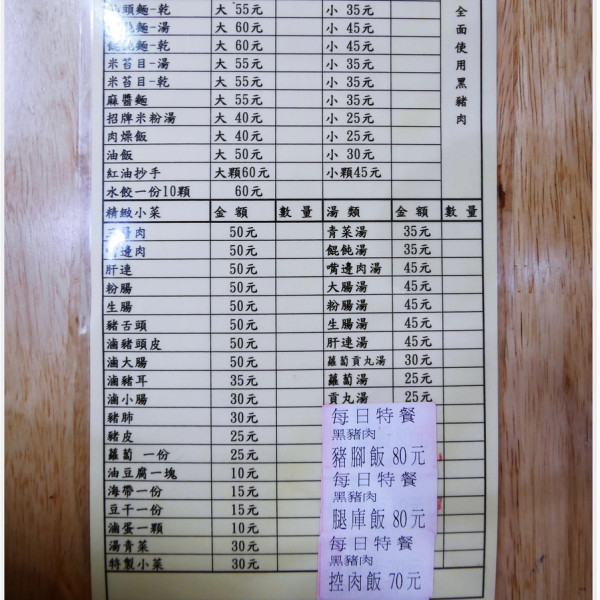 麵-乾 大 55元 小 35元
麵-湯 大 60元 小 45元
麵-乾 大 60元 小 45元
米苔目-湯 大 55元 小 35元
米苔目-乾 大 55元 小 35元
麻醬麵 大 55元 小 35元
招牌米粉湯 大 40元 小 25元
肉燥飯 大 40元 小 25元
油飯 大 50元 小 30元
紅油抄手 大顆60元 小顆45元
水餃一份10顆 60元
全面使用黑豬肉
精緻小菜 金額 數量 湯類 金額 數量
肉 50元 青菜湯 35元
嘴邊肉 50元 餛飩湯 35元
肝連 50元 嘴邊肉湯 45元
粉腸 50元 大腸湯 45元
生腸 50元 粉腸湯 45元
豬舌頭 50元 生腸湯 45元
滷豬頭皮 50元 肝連湯 45元
滷大腸 50元 蘿蔔貢丸湯 30元
滷豬耳 35元 蘿蔔湯 25元
滷小腸 30元 貢丸湯 25元
豬肺 30元
豬皮 25元
蘿蔔 一份 25元
油豆腐一塊 10元
海帶一份 15元
豆干一份 15元
滷蛋一顆 10元
湯青菜 30元
特製小菜 30元
每日特餐
黑豬肉
豬腳飯 80元
每日特餐
黑豬肉
腿庫飯 80元
每日特餐
黑豬肉
控肉飯 70元